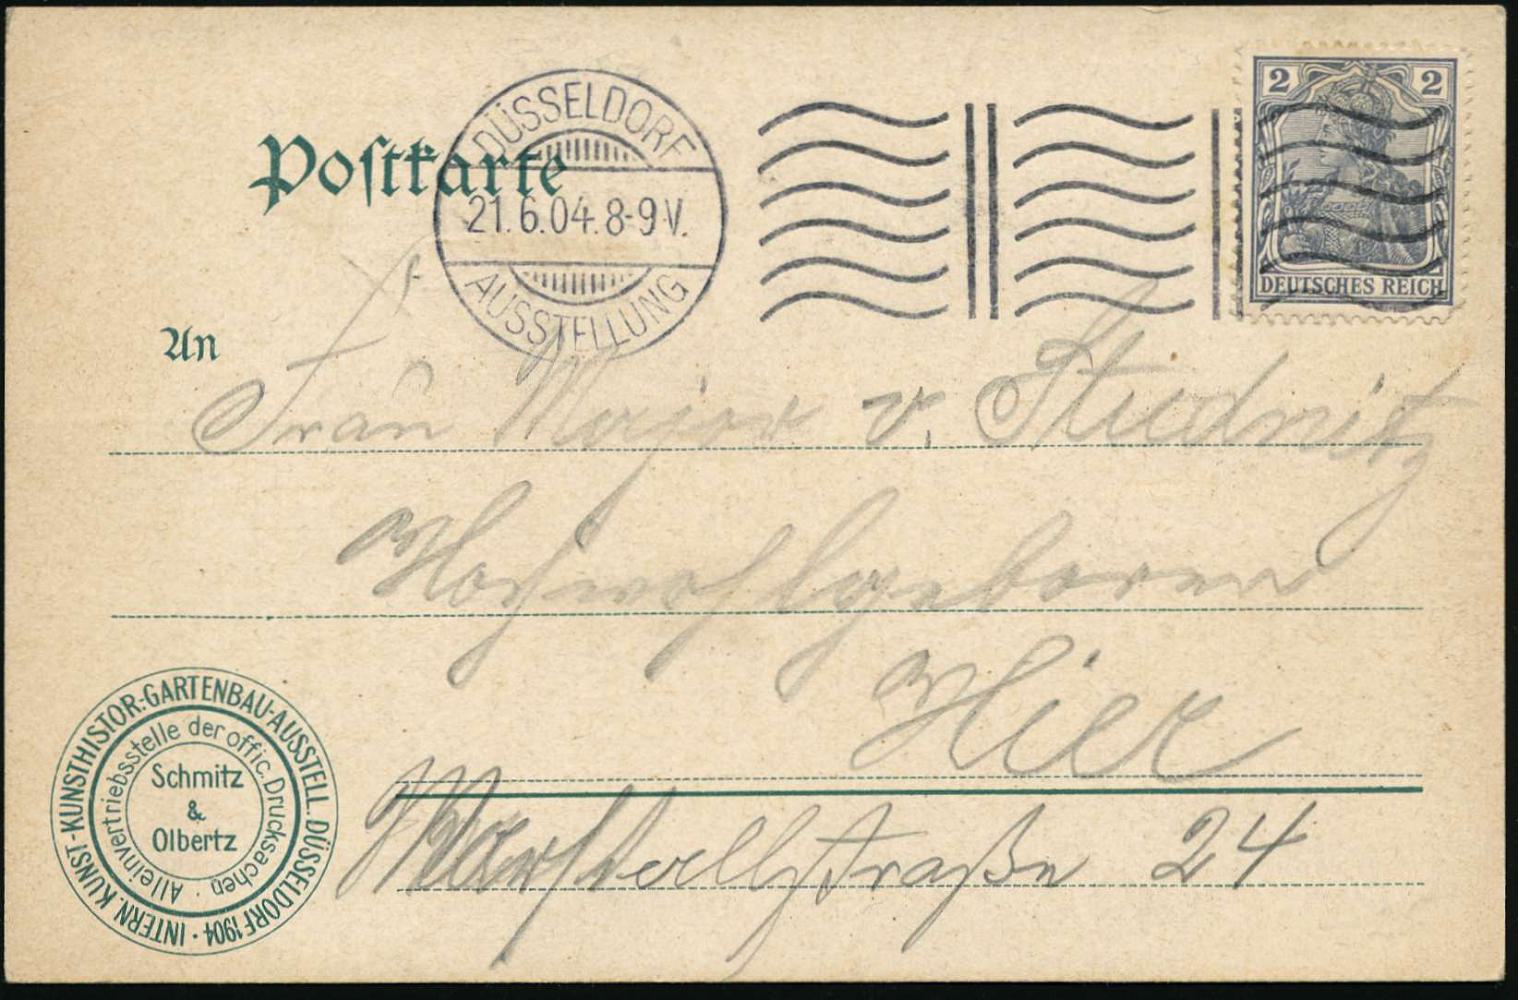 Postkarte
DÜSSELDORF
21.6.04.8-9V.
AUSSTELLUNG
2 2
DEUTSCHES REICH
An
Frau Major v. Studnitz
Hochwohlgeboren
Hier
Marschallstraße 24
INTERN. KUNST- KUNSTHISTOR.-GARTENBAU-AUSSTELL. DÜSSELDORF 1904 ·
Alleinvertriebsstelle der offic. Drucksachen ·
Schmitz
&
Olbertz